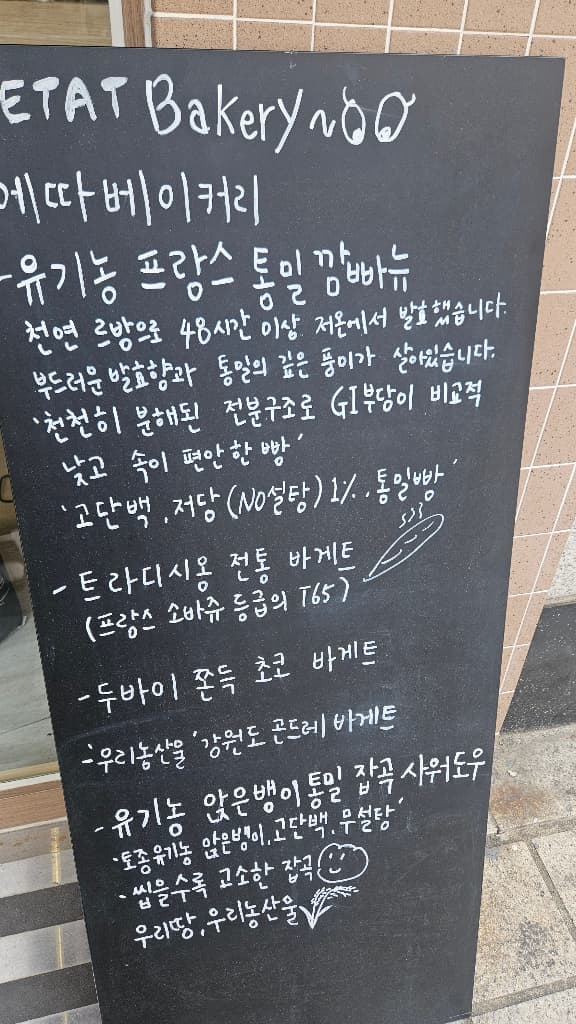 ETAT Bakery~
에따베이커리
-유기농 프랑스 통밀 깜빠뉴
천연 르방으로 48시간 이상 저온에서 발효했습니다.
부드러운 발효향과 통밀의 깊은 풍미가 살아있습니다.
'천천히 분해된 전분구조로 GI부담이 비교적
낮고 속이 편안한 빵'
'고단백, 저당(NO설탕) 1%, 통밀빵'
- 트라디시옹 전통 바게트
(프랑스 소바쥬 등급의 T65)
- 두바이 쫀득 초코 바게트
- '우리농산물' 강원도 곤드레 바게트
- 유기농 앉은뱅이통밀 잡곡 사워도우
'토종유기농 앉은뱅이, 고단백, 무설탕'
- 씹을수록 고소한 잡곡
우리땅, 우리농산물